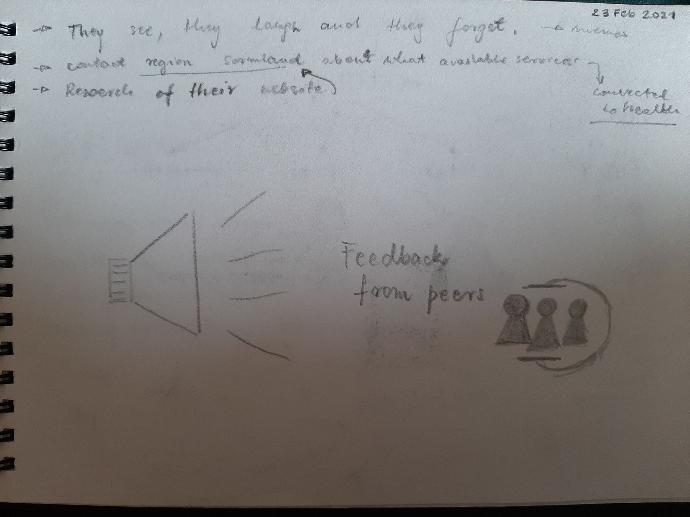 23 Feb 2021
→ They see, they laugh and they forget.
→ contact region sormland about what available services
connected
to health
→ Research of their website
Feedback
from peers